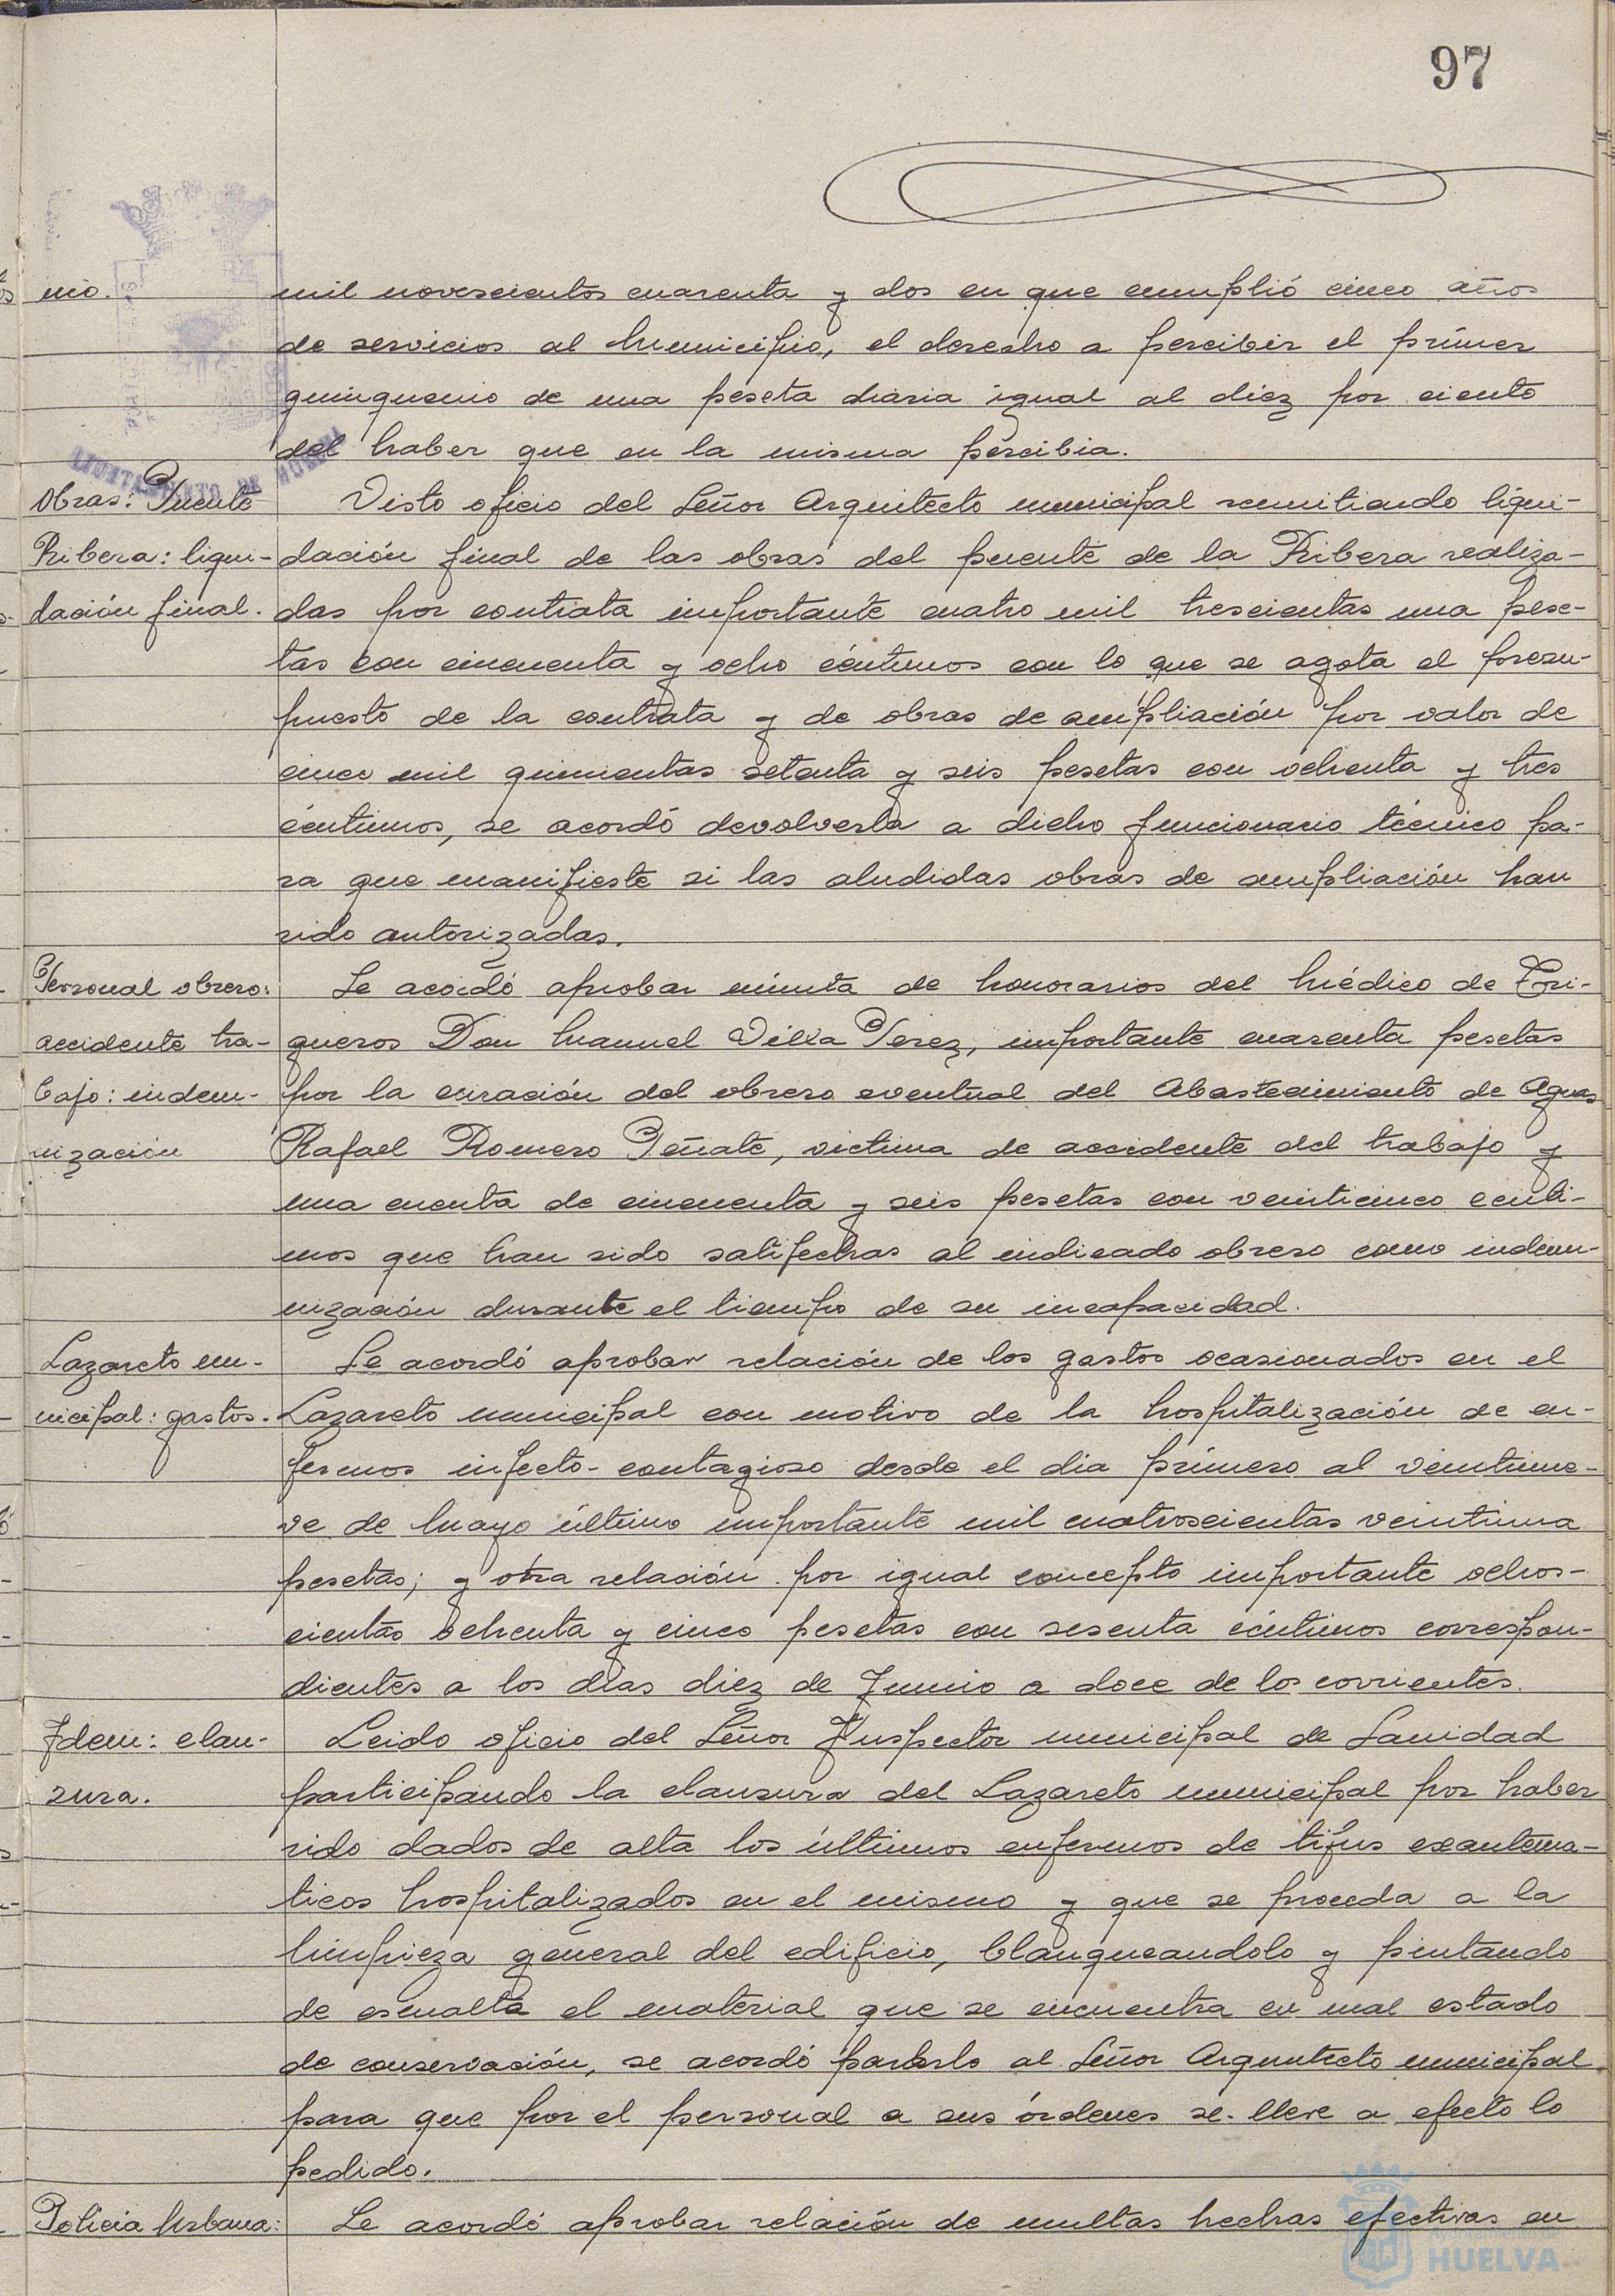 97
nio.
mil novescientos cuarenta y dos en que cumplió cinco años
de servicios al Municipio, el derecho a percibir el primer
quinquenio de una peseta diaria igual al diez por ciento
del haber que en la misma percibia.
AYUNTAMIENTO DE HUELVA
Obras: Puente
Visto oficio del Señor Arquitecto municipal remitiendo liqui-
Ribera: liqui-
dación final de las obras del puente de la Ribera realiza-
dación final.
das por contrata importante cuatro mil trescientas una pese-
tas con cincuenta y ocho céntimos con lo que se agota el presu-
puesto de la contrata y de obras de ampliación por valor de
cinco mil quinientas setenta y seis pesetas con ochenta y tres
céntimos, se acordó devolverla a dicho funcionario técnico pa-
ra que manifieste si las aludidas obras de ampliación han
sido autorizadas.
Personal obrero:
Se acordó aprobar minuta de honorarios del Médico de Tri-
accidente tra-
gueros Don Manuel Villa Perez, importante cuarenta pesetas
bajo: indem-
por la curación del obrero eventual del Abastecimiento de Aguas
nización
Rafael Romero Peñate, victima de accidente del trabajo y
una cuenta de cincuenta y seis pesetas con veinticinco centi-
mos que han sido satifechas al indicado obrero como indem-
nización durante el tiempo de su incapacidad.
Lazareto mu-
Se acordó aprobar relación de los gastos ocasionados en el
nicipal: gastos.
Lazareto municipal con motivo de la hospitalización de en-
fermos infecto-contagioso desde el dia primero al veintinue-
ve de Mayo último importante mil cuatroscientas veintiuna
pesetas; y otra relación por igual concepto importante ochos-
cientas ochenta y cinco pesetas con sesenta céntimos correspon-
dientes a los días diez de Junio a doce de los corrientes.
Idem: clau-
Leido oficio del Señor Inspector municipal de Sanidad
sura.
participando la clausura del Lazareto municipal por haber
sido dados de alta los últimos enfermos de tifus exantema-
ticos hospitalizados en el mismo y que se proceda a la
limpieza general del edificio, blanqueandolo y pintando
de esmalte el material que se encuentra en mal estado
de conservación, se acordó pasarlo al Señor Arquitecto municipal
para que por el personal a sus órdenes se lleve a efecto lo
pedido.
Policia Urbana:
Se acordó aprobar relación de multas hechas efectivas en
HUELVA